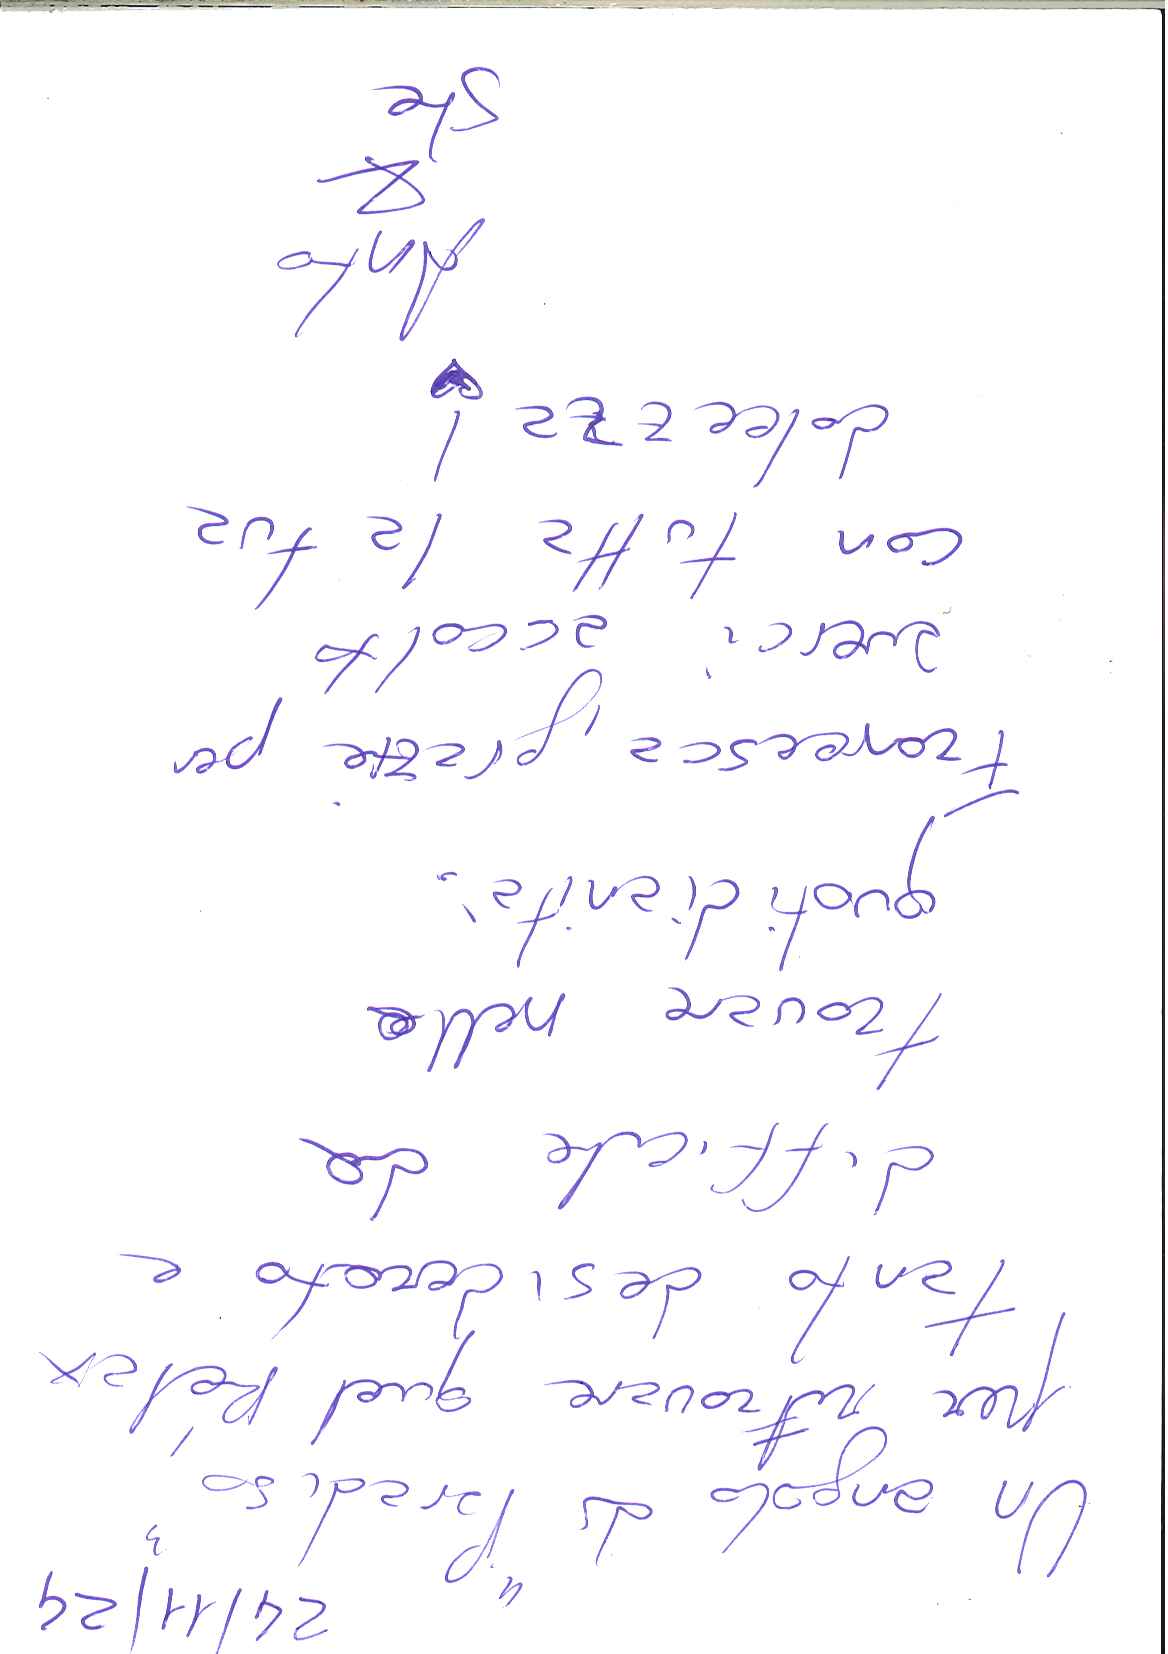 24/11/24
Un angolo di "Paradiso"
per ritrovare quel Relax
tanto desiderato e
difficile da
trovare nella
quotidianità.
Francesca, grazie per
averci accolto
con tutta la tua
dolcezza !
Anto
&
Ste